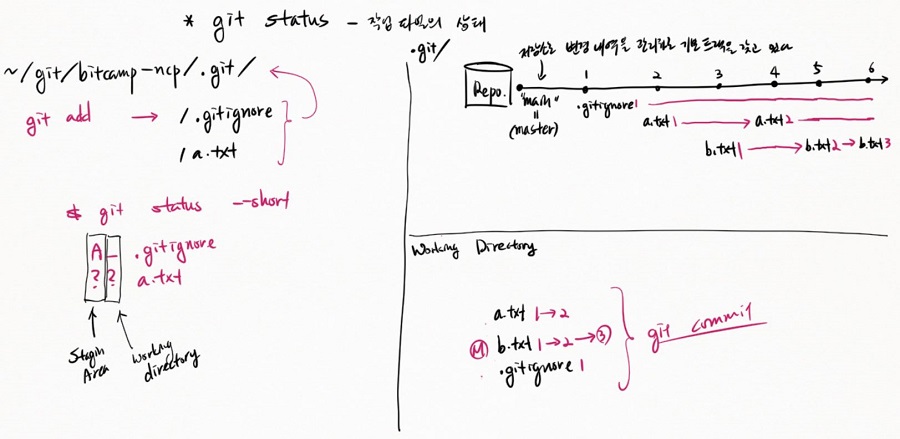 * git status - 작업 파일의 상태
~/git/bitcamp-ncp/.git/
git add → /.gitignore
/a.txt
$ git status --short
A _ .gitignore
? ? a.txt
Stagin Area
Working directory
.git/
저장소로 변경 내역을 관리하는 기본 트랙을 갖고 있다
Repo.
1 2 3 4 5 6
"main"
=
(master)
.gitignore 1
a.txt 1 → a.txt 2
b.txt 1 → b.txt 2 → b.txt 3
Working Directory
a.txt 1→2
M b.txt 1→2→3
.gitignore 1
git commit